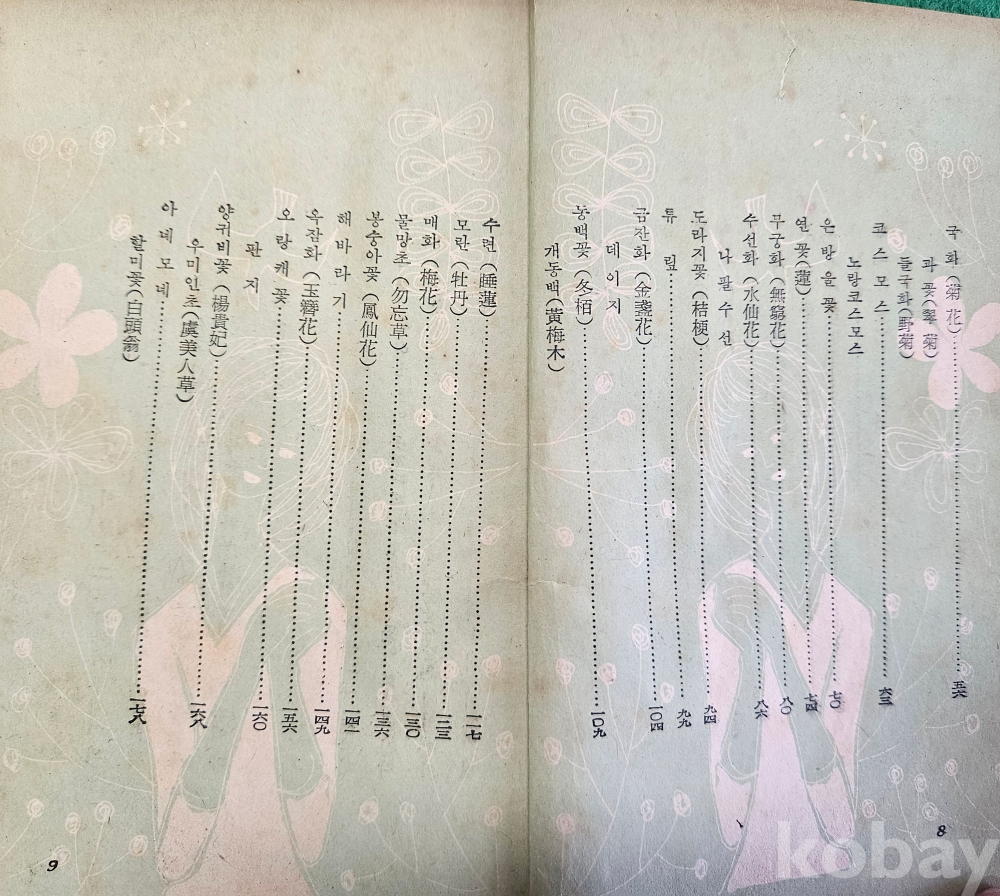 국화(菊花)……………五六
과꽃(翠菊)
들국화(野菊)
코스모스……………六三
노랑코스모스
은방울꽃……………七〇
연꽃(蓮)……………七四
무궁화(無窮花)……………八〇
수선화(水仙花)……………八六
나팔수선
도라지꽃(桔梗)……………九四
튜맆……………九九
금잔화(金盞花)……………一〇四
데이지
동백꽃(冬栢)……………一〇九
개동백(黃梅木)
8
수련(睡蓮)……………一一七
모란(牡丹)……………一二三
매화(梅花)……………一三〇
물망초(勿忘草)……………一三六
봉숭아꽃(鳳仙花)……………一四一
해바라기……………一四九
옥잠화(玉簪花)……………一五六
오랑캐꽃……………一六〇
판지
양귀비꽃(楊貴妃)……………一六八
우미인초(虞美人草)
아네모네……………一七八
할미꽃(白頭翁)
9
kobay